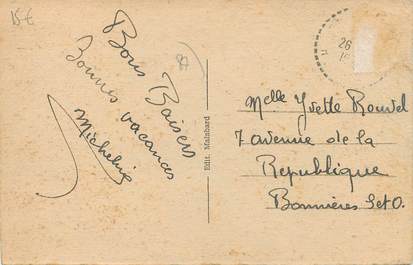 15€
Bons Baisers
Bonnes vacances
Micheline
Edit. Mainbard
26
Melle Yvette Rouvel
7 avenue de la
Republique
Bonnières S et O.